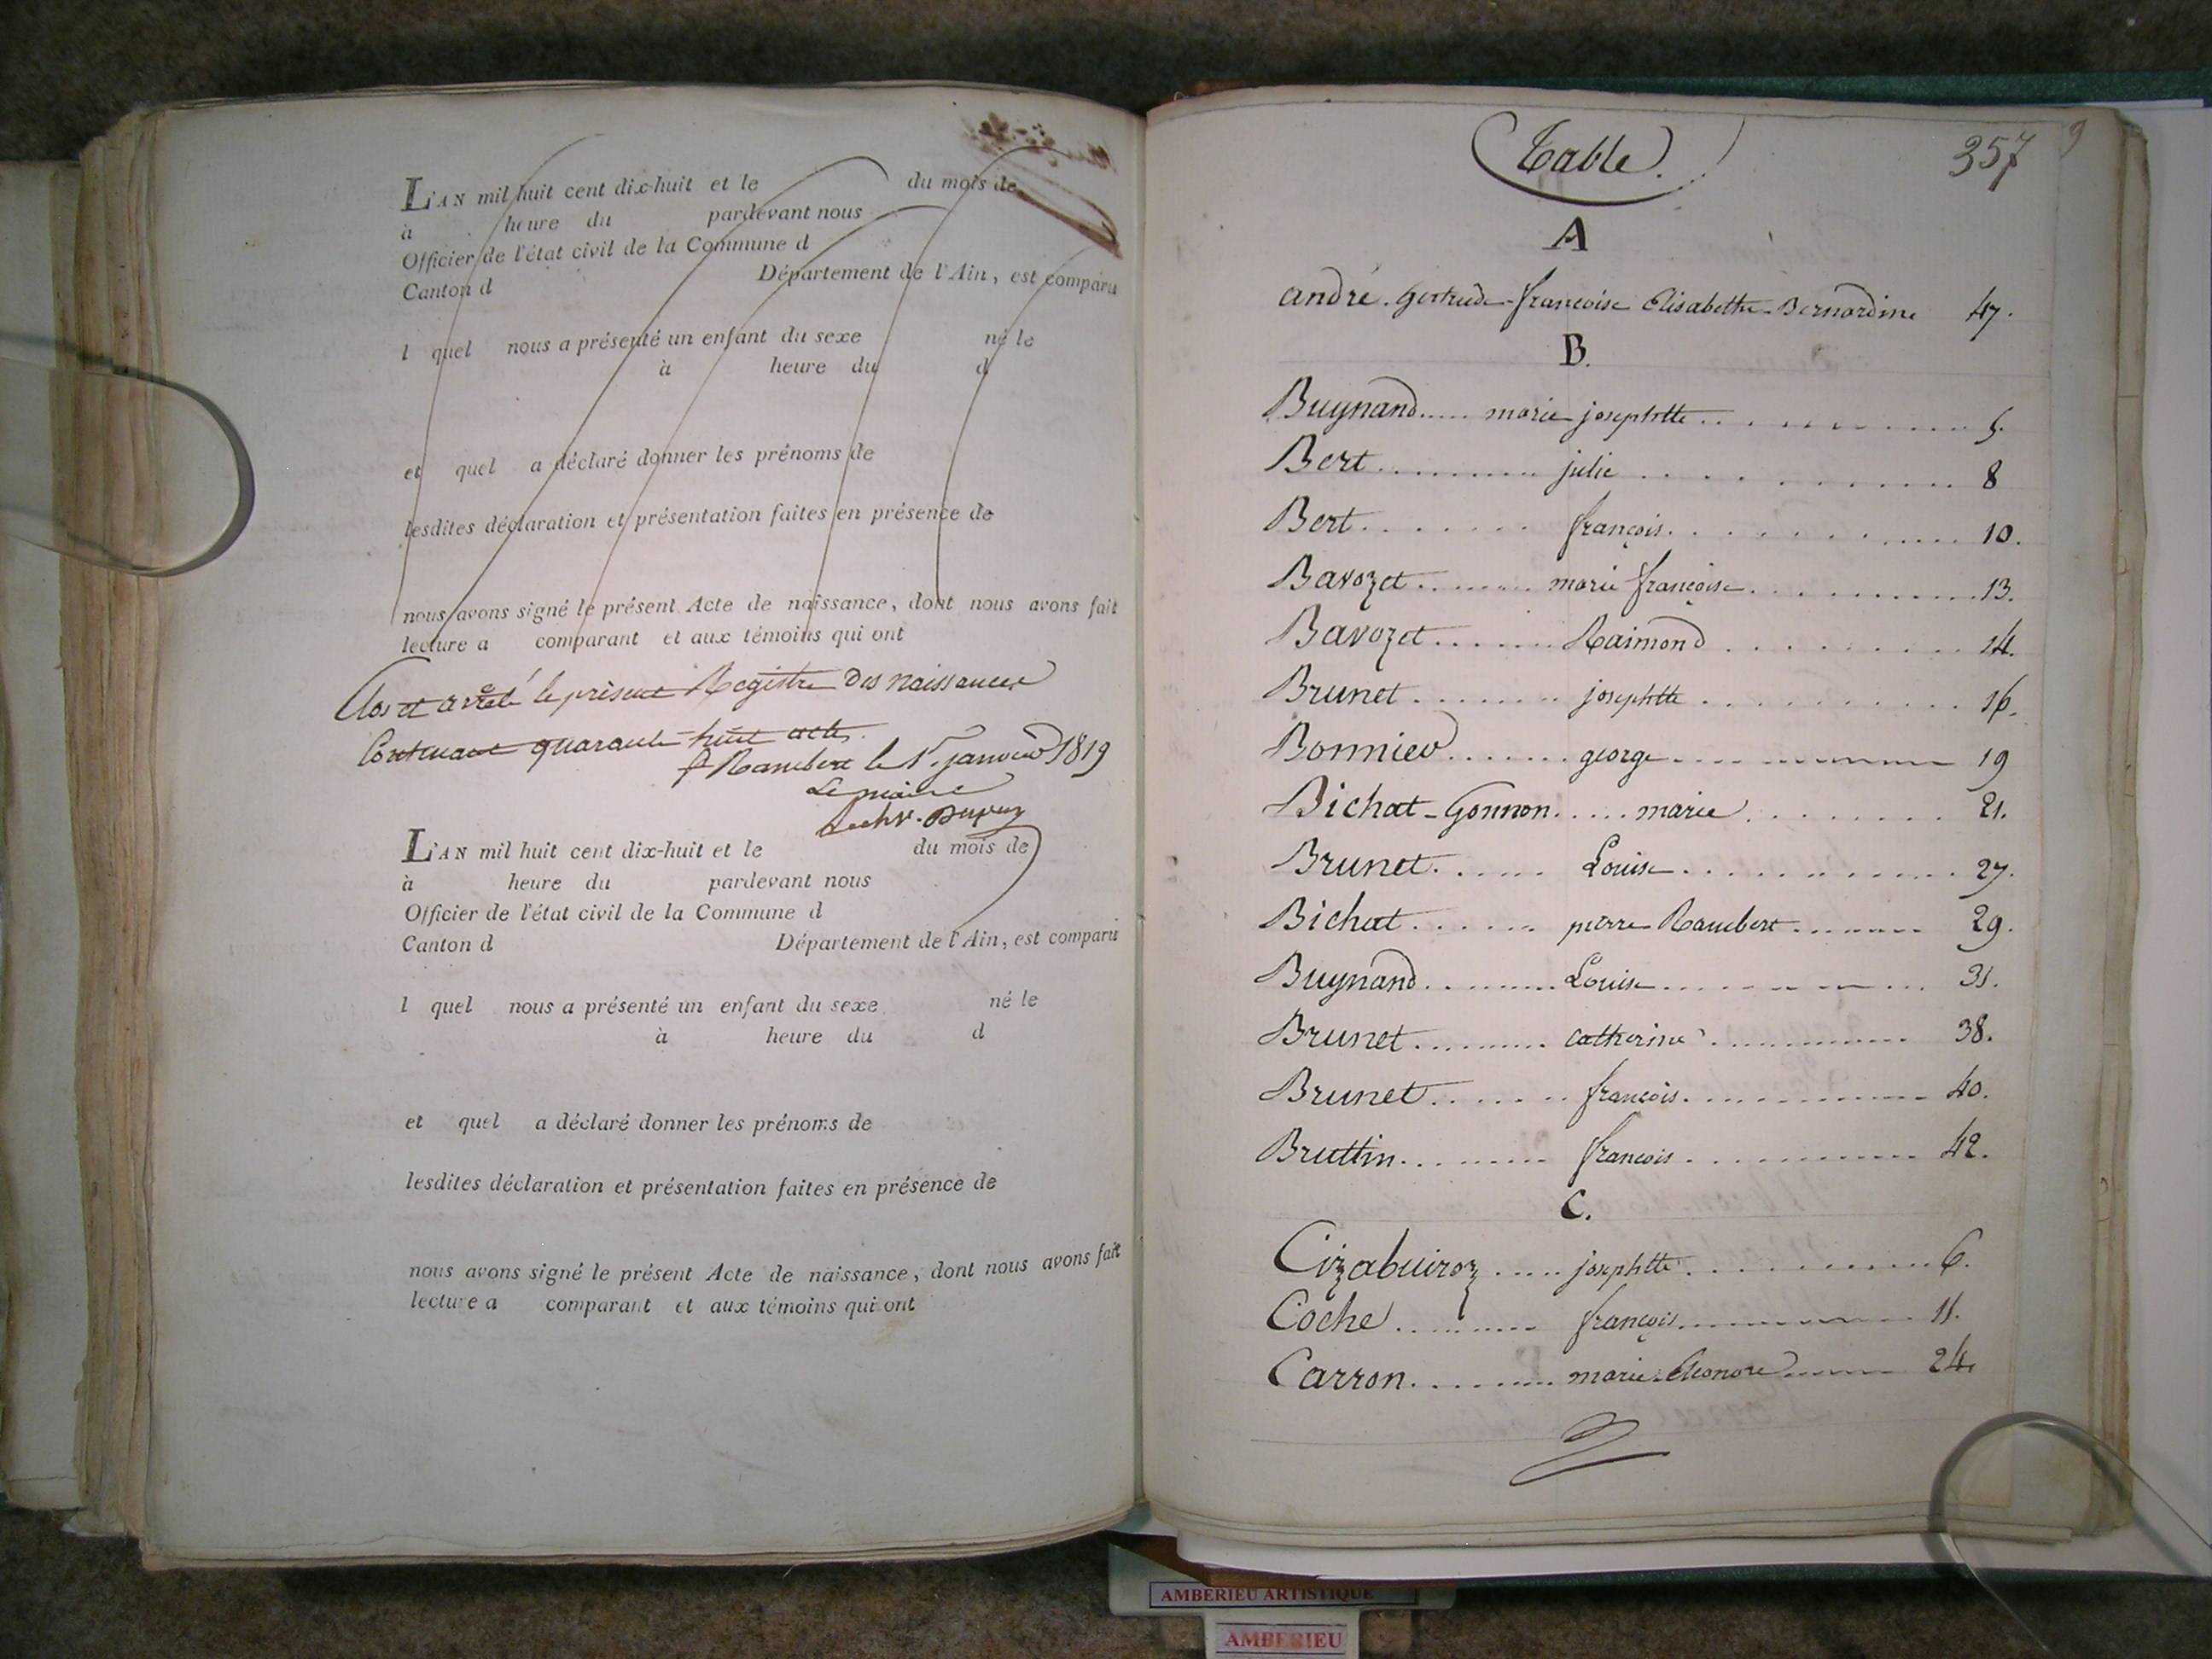 L'AN mil huit cent dix-huit et le du mois de
à heure du pardevant nous
Officier de l'état civil de la Commune d
Canton d Département de l'Ain, est comparu
l quel nous a présenté un enfant du sexe né le
à heure du d
et quel a déclaré donner les prénoms de
lesdites déclaration et présentation faites en présence de
nous avons signé le présent Acte de naissance, dont nous avons fait
lecture a comparant et aux témoins qui ont
Clos et arrêté le présent Registre des naissances
Contenant quarante-huit actes.
St Rambert le 1r. janvier 1819
Le maire
L'AN mil huit cent dix-huit et le du mois de
à heure du pardevant nous
Officier de l'état civil de la Commune d
Canton d Département de l'Ain, est comparu
l quel nous a présenté un enfant du sexe né le
à heure du d
et quel a déclaré donner les prénoms de
lesdites déclaration et présentation faites en présence de
nous avons signé le présent Acte de naissance, dont nous avons fait
lecture a comparant et aux témoins qui ont
Table. 357 9
A
andré. Gertrude-françoise Elisabethe-Bernardine 47.
B.
Buynand..... marie josephtte........... 5.
Bert............ julie............ 8
Bert........ françois............ 10.
Bavozet........ marie françoise............ 13.
Bavozet....... Raimond.......... 14.
Brunet........ josephtte........... 16.
Bonnier....... george............ 19
Bichat-Gonnon..... marie......... 21.
Brunet...... Louise............ 27.
Bichat...... pierre Rambert....... 29.
Buynand......... Louise............ 31.
Brunet......... catherine............ 38.
Brunet....... françois............ 40.
Bruttin........ françois............ 42.
C.
Cizabuiroz..... josephtte............ 6.
Coche........ françois............ 11.
Carron......... marie-Eleonore....... 24.
AMBERIEU ARTISTIQUE
AMBERIEU